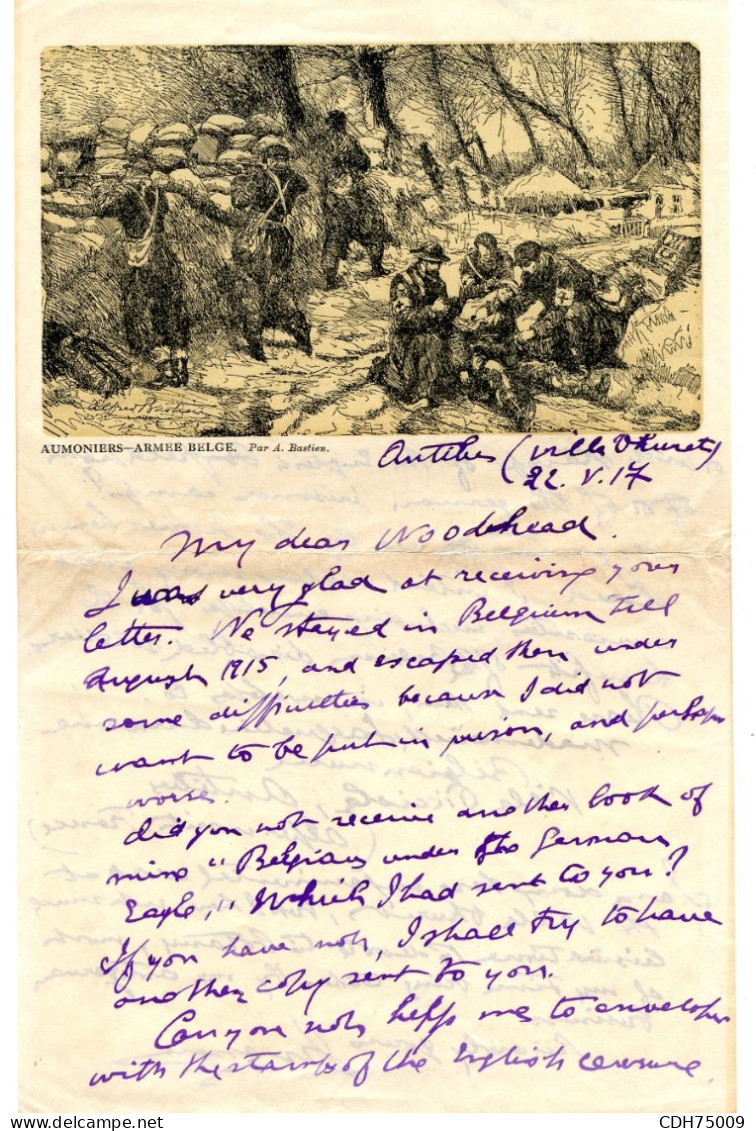 Alfred Bastien
AUMONIERS—ARMEE BELGE. Par A. Bastien.
Antibes (Villa Thuret)
22. V. 17
My dear Woodhead.
I was very glad at receiving your
letter. We stayed in Belgium till
August 1915, and escaped then under
some difficulties because I did not
want to be put in prison, and perhaps
worse.
did you not receive another book of
mine "Belgians under the German
Eagle," Which I had sent to you?
If you have not, I shall try to have
another copy sent to you.
Can you not help me to envelopes
with the stamps of the English censure
CDH75009